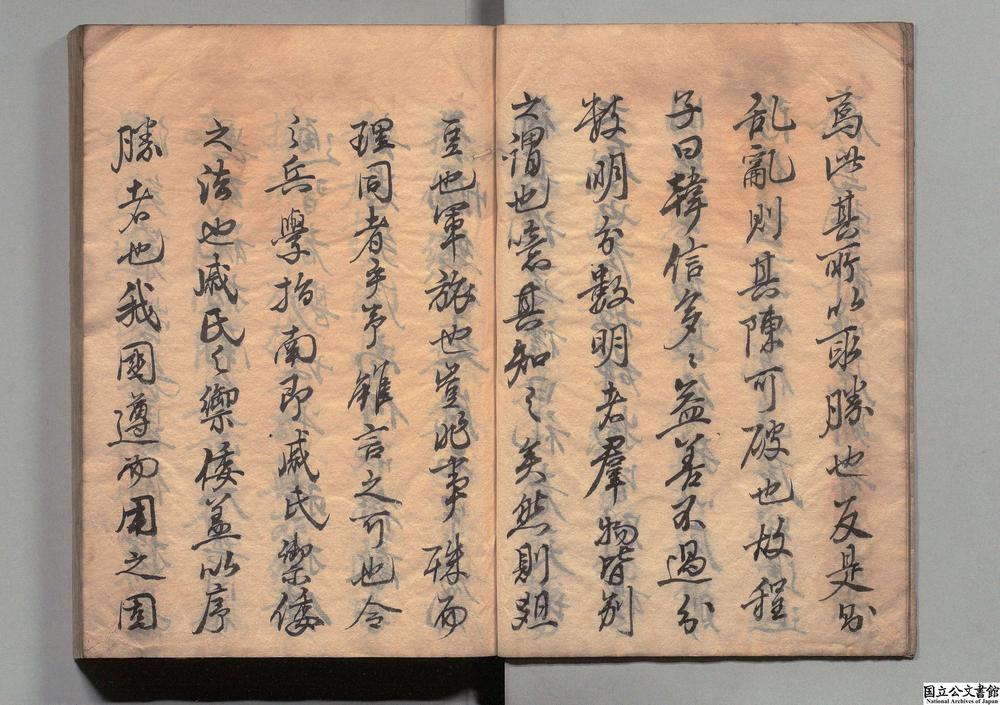 焉此其所以取勝也反是則
乱亂則其陳可破也故程
子曰韓信多〻益善不過分
數明分數明者羣物皆別
之謂也噫其知之矣然則俎
豆也軍旅也豈非事殊而
理同者乎予雖言之可也今
之兵學指南即戚氏禦倭
之法也戚氏之禦倭蓋以序
勝者也我國遵而用之固
国立公文書館
National Archives of Japan